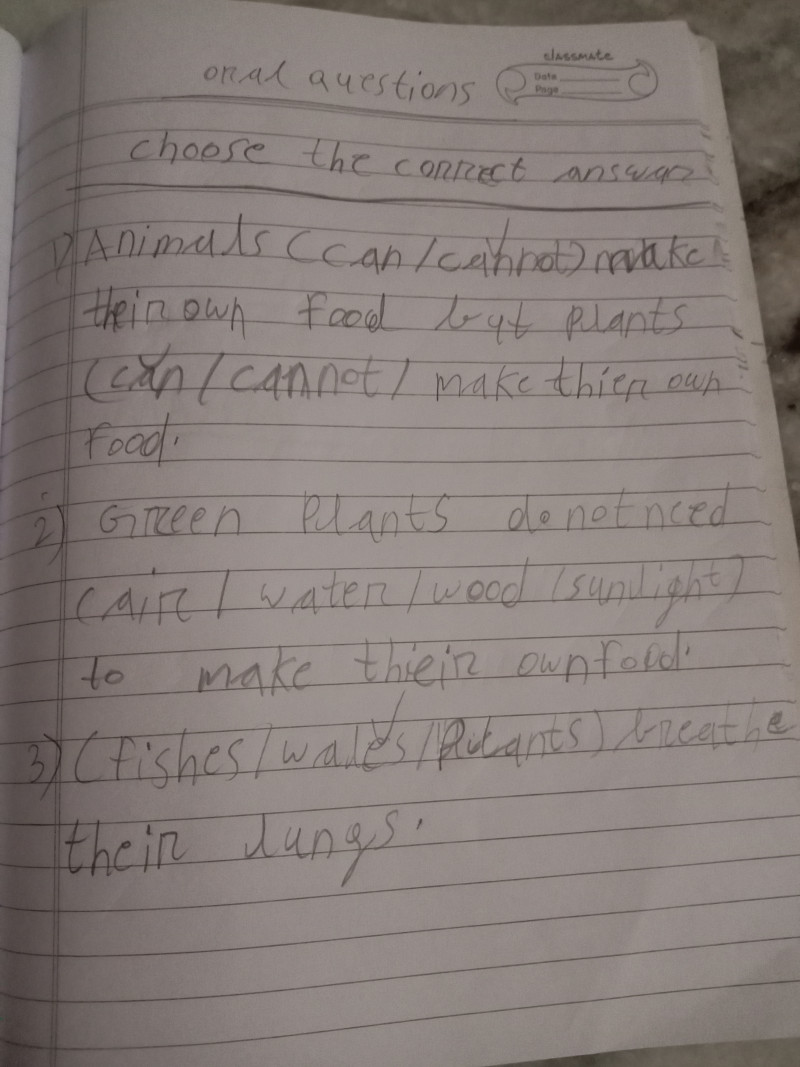 classmate
Date
Page
onal questions
choose the correct answar
1) Animals (can/cannot) make
their own food but plants
(can/cannot/ make thier own
food.
2) Green plants do not need
(air/water/wood/sunlight)
to make thieir own food.
3) (fishes/wales/Plants) breathe
their lungs.